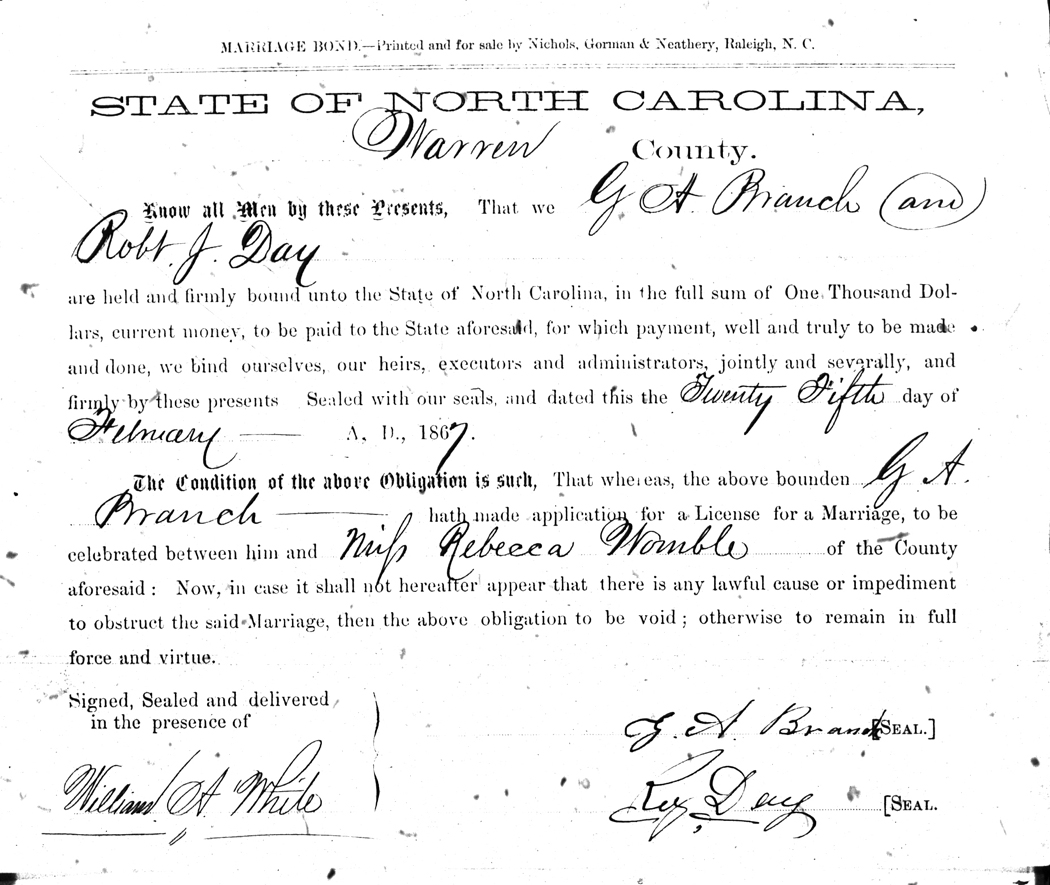 MARRIAGE BOND.—Printed and for sale by Nichols, Gorman & Neathery, Raleigh, N. C.
STATE OF NORTH CAROLINA,
Warren County.
Know all Men by these Presents, That we G A Branch (and)
Robt. J. Day
are held and firmly bound unto the State of North Carolina, in the full sum of One Thousand Dol-
lars, current money, to be paid to the State aforesaid, for which payment, well and truly to be made
and done, we bind ourselves, our heirs, executors and administrators, jointly and severally, and
firmly by these presents Sealed with our seals, and dated this the Twenty Fifth day of
February — A. D., 1867.
The Condition of the above Obligation is such, That whereas, the above bounden G A.
Branch — hath made application for a License for a Marriage, to be
celebrated between him and Miss Rebecca Womble of the County
aforesaid: Now, in case it shall not hereafter appear that there is any lawful cause or impediment
to obstruct the said Marriage, then the above obligation to be void; otherwise to remain in full
force and virtue.
Signed, Sealed and delivered
in the presence of
G. A. Branch [SEAL.]
William A White
Day [SEAL.